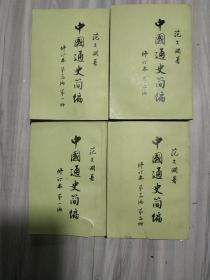 范文澜著
中國通史简编
修订本 第三编 第一册
范文澜著
中國通史简编
修订本 第二编
范文澜著
中國通史简编
修订本 第一编
范文澜著
中國通史简编
修订本 第三编 第二册